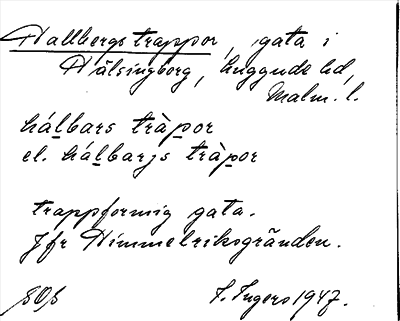 Hallbergs trappor, gata i
Hälsingborg, Luggude hd,
Malm. l.
hálbars tràpor
el. hálbarjs tràpor
trappformig gata.
Jfr Himmelriksgränden.
I. Ingers 1947.